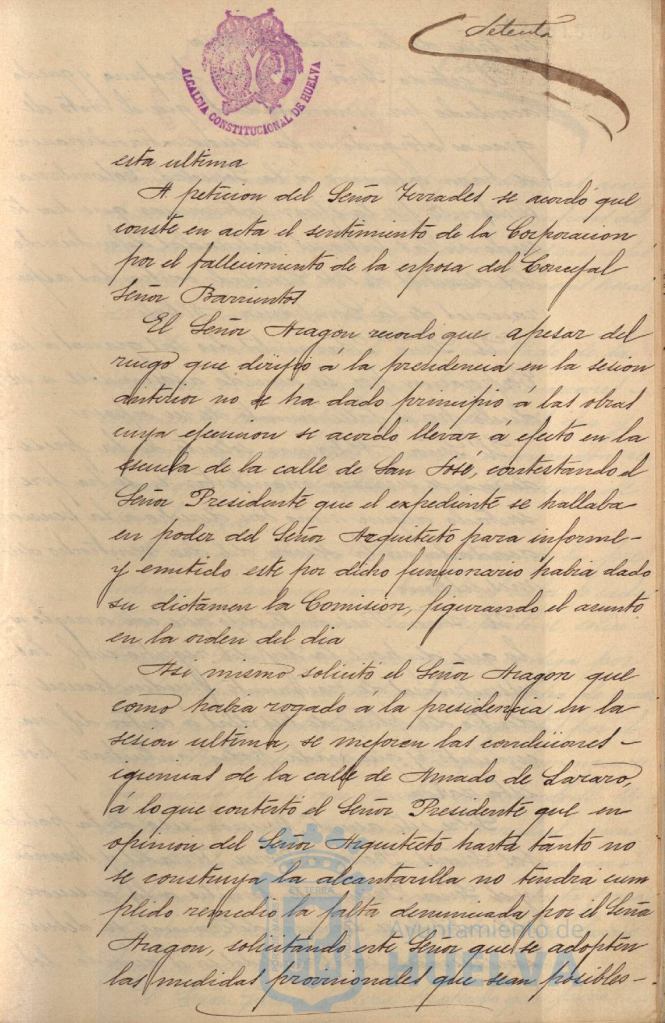 Setenta
ALCALDIA CONSTITUCIONAL DE HUELVA
esta ultima
A peticion del Señor Terrades se acordó que
conste en acta el sentimiento de la Corporacion
por el fallecimiento de la esposa del Concejal
Señor Barrientos
El Señor Aragon recordo que apesar del
ruego que dirijió á la presidencia en la sesion
anterior no se ha dado principio á las obras
cuya ejecucion se acordó llevar á efecto en la
escuela de la calle de San José, contestando el
Señor Presidente que el expediente se hallaba
en poder del Señor Arquitecto para informe-
y emitido este por dicho funcionario habia dado
su dictamen la Comision, figurando el asunto
en la orden del dia
Asi mismo solicitó el Señor Aragon que
como habia rogado á la presidencia en la
sesion ultima, se mejoren las condiciones-
igienicas de la calle de Amado de Lazaro,
á lo que contestó el Señor Presidente que en
opinion del Señor Arquitecto hasta tanto no
se construya la alcantarilla no tendrá cum
plido remedio la falta denunciada por el Señor
Aragon, solicitando este Señor que se adopten
las medidas provisionales que sean posibles-
Ayuntamiento de
HUELVA